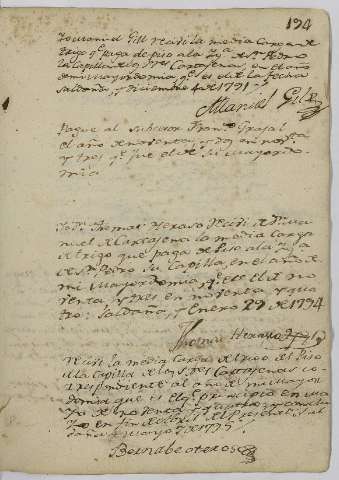 194
Yo Manuel Gil Recivi la media Carga de
trigo qe paga de piso a la Yga de Sn Pedro
la Capilla de los Sres Cartajenas, en el año
de mi mayordomia, qe es el de la fecha
Saldaña, y Diciembre 4 de 1791
Manuel Gil
Pague al subcesor Franco Grajal
el año de noventa, y dos en noventa
y tres qe fue el de su mayordo-
mia
Yo Dn Thomas Herazo Recivi de Dn Ma-
nuel de Cartajena la media Carga
de trigo que paga de Piso a la Yga
de Sn Pedro su Capilla, en el año de
mi mayordomia, qe es el de no
venta, y tres en noventa y qua
tro: Saldaña, y Enero 29 de 1794
Thomas Herazo
Recivi la media Carga de trigo del Piso
de la Capilla de los Sres Cartajenas co-
rrespondiente al año de mi mayor
domia que es el qe principio en ma
yo de noventa y
yo en fin de Abril del presente. Sal
daña y mayo de 1795
Bernabe otero